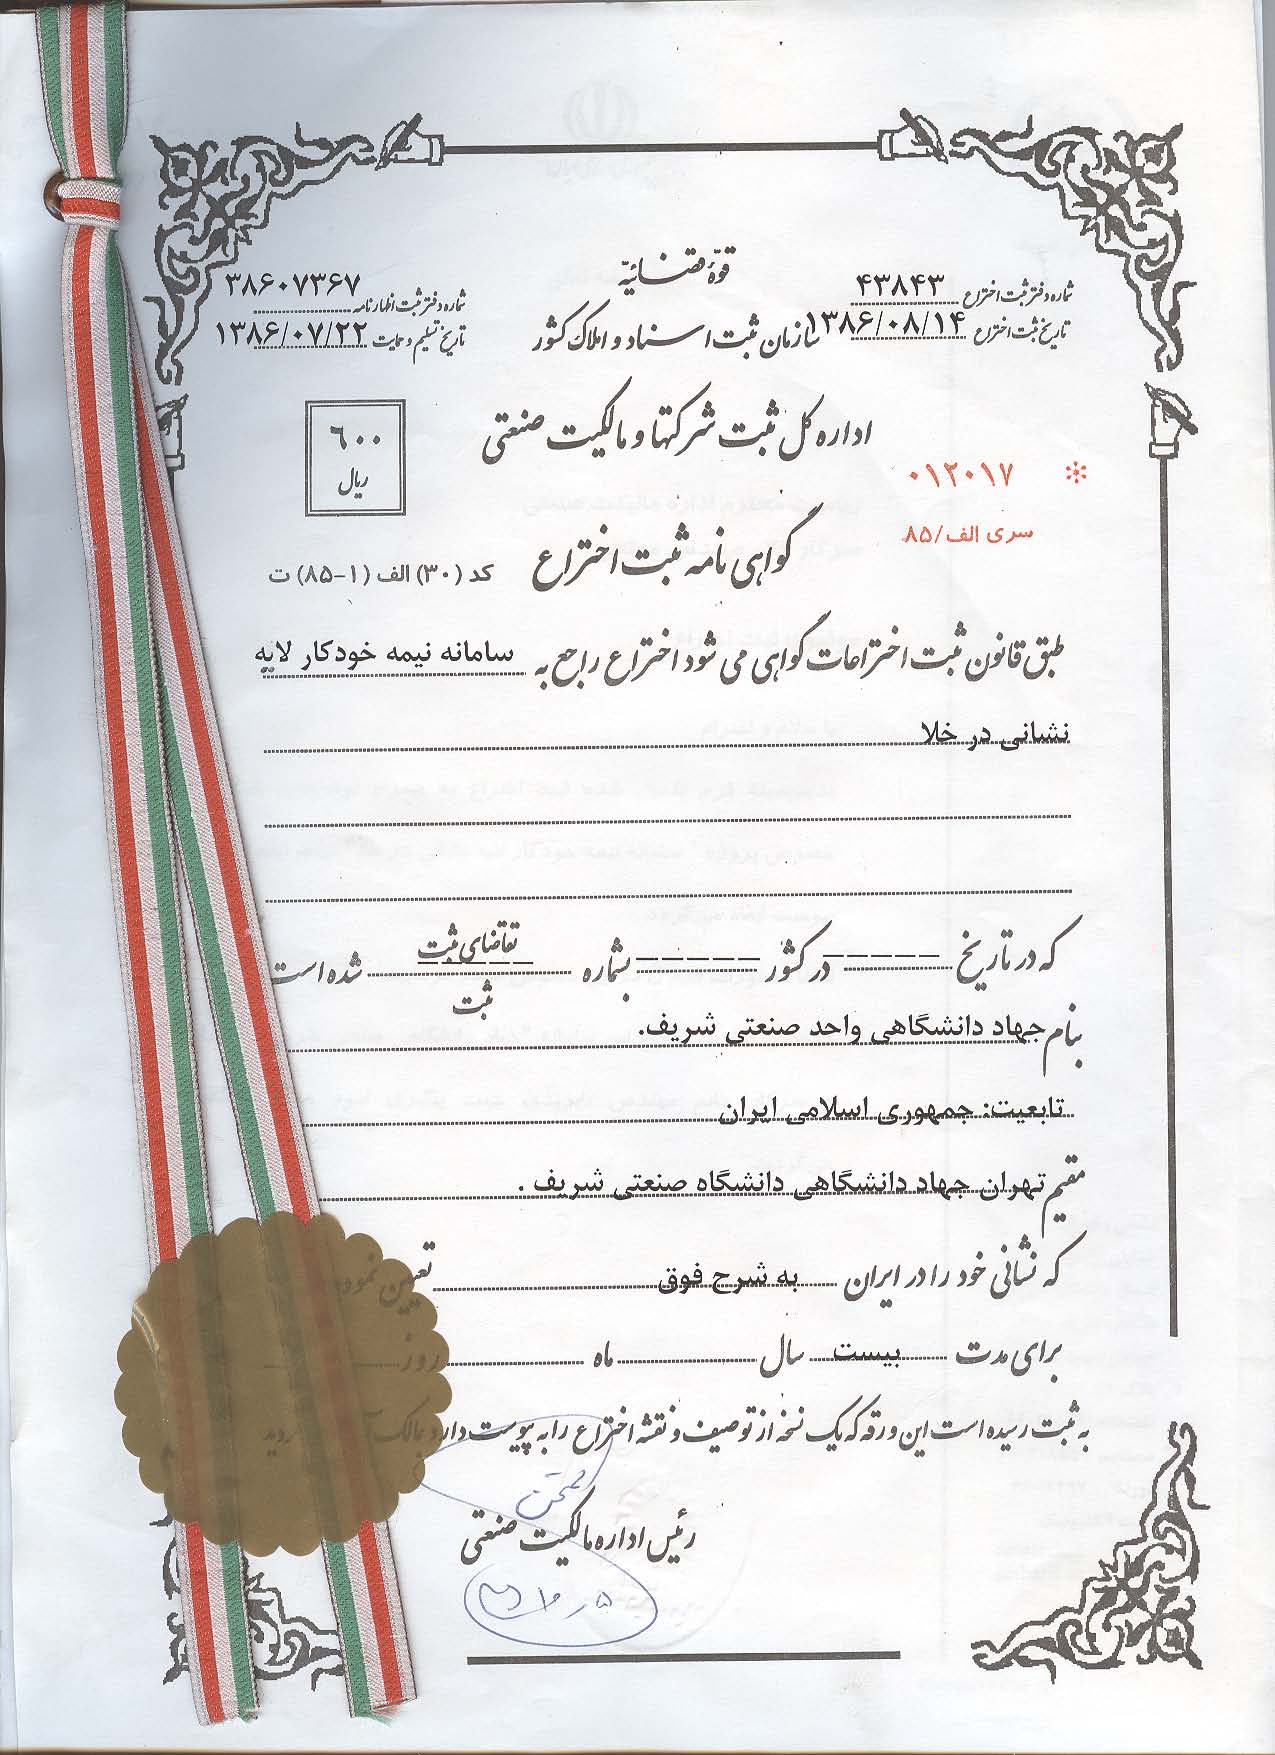 قوّهٔ قضائیّه
شماره دفتر ثبت اختراع ۴۳۸۴۳
شماره دفتر ثبت اظهارنامه ۳۸۶۰۷۳۶۷
سازمان ثبت اسناد و املاک کشور
تاریخ ثبت اختراع ۱۳۸۶/۰۸/۱۴
تاریخ تسلیم و حمایت ۱۳۸۶/۰۷/۲۲
اداره کل ثبت شرکتها و مالکیت صنعتی
۶۰۰
ریال
۰۱۲۰۱۷
سری الف/۸۵
گواهی نامه ثبت اختراع
کد (۳۰) الف (۱-۸۵) ت
طبق قانون ثبت اختراعات گواهی می شود اختراع راجع به سامانه نیمه خودکار لایه
نشانی در خلا
که در تاریخ ------ در کشور ------ بشماره تقاضای ثبت ------ شده است
ثبت
بنام جهاد دانشگاهی واحد صنعتی شریف.
تابعیت: جمهوری اسلامی ایران
مقیم تهران جهاد دانشگاهی دانشگاه صنعتی شریف .
که نشانی خود را در ایران به شرح فوق تعیین نموده
برای مدت بیست سال ماه روز
به ثبت رسیده است این ورقه که یک نسخه از توصیف و نقشه اختراع را به پیوست دارد بمالک
رئیس اداره مالکیت صنعتی